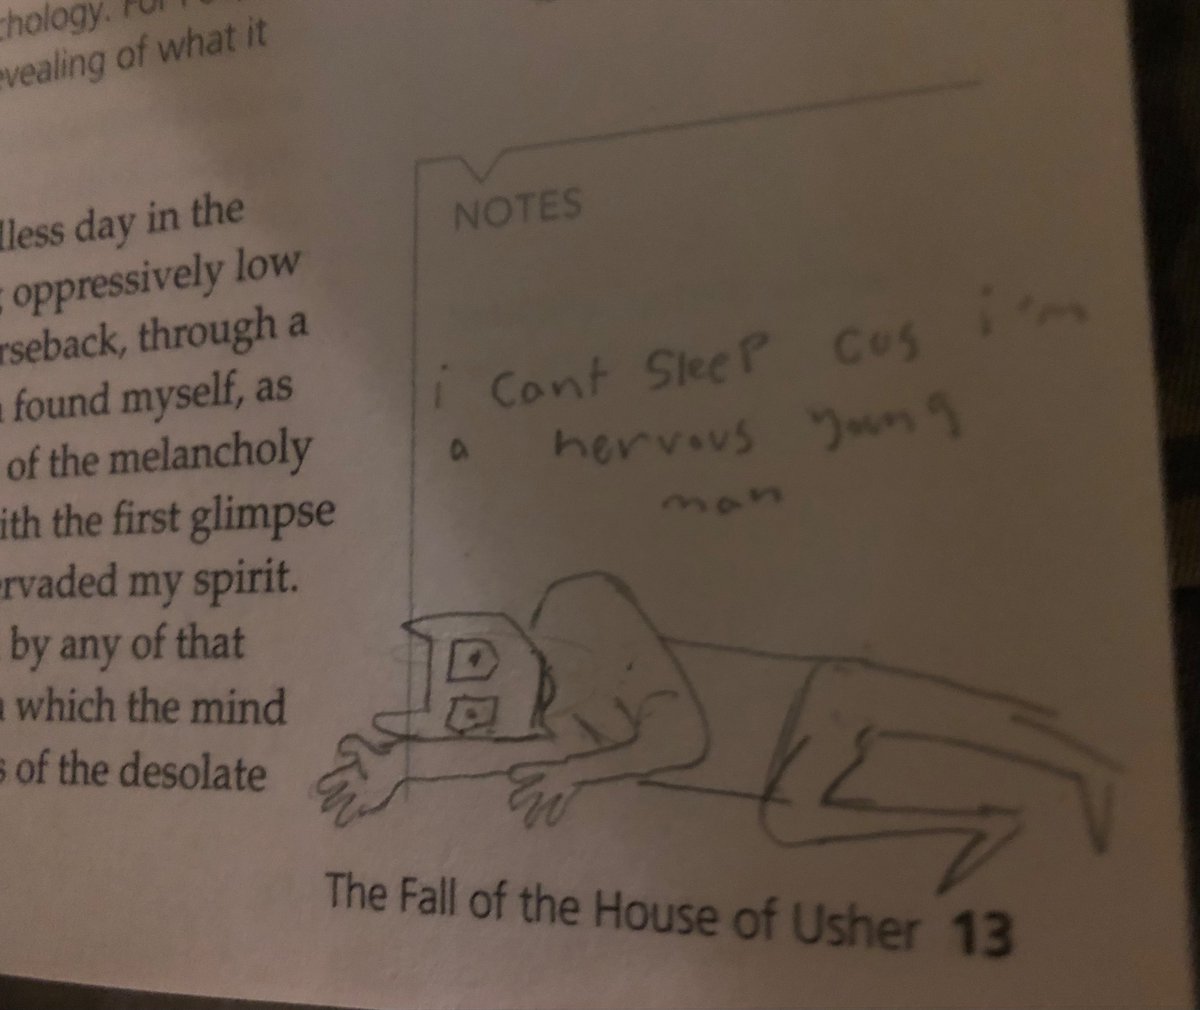 chology. For
evealing of what it
lless day in the
oppressively low
rseback, through a
found myself, as
of the melancholy
ith the first glimpse
ervaded my spirit.
by any of that
which the mind
s of the desolate
NOTES
i cant sleep cos i'm
a nervous young
man
The Fall of the House of Usher 13